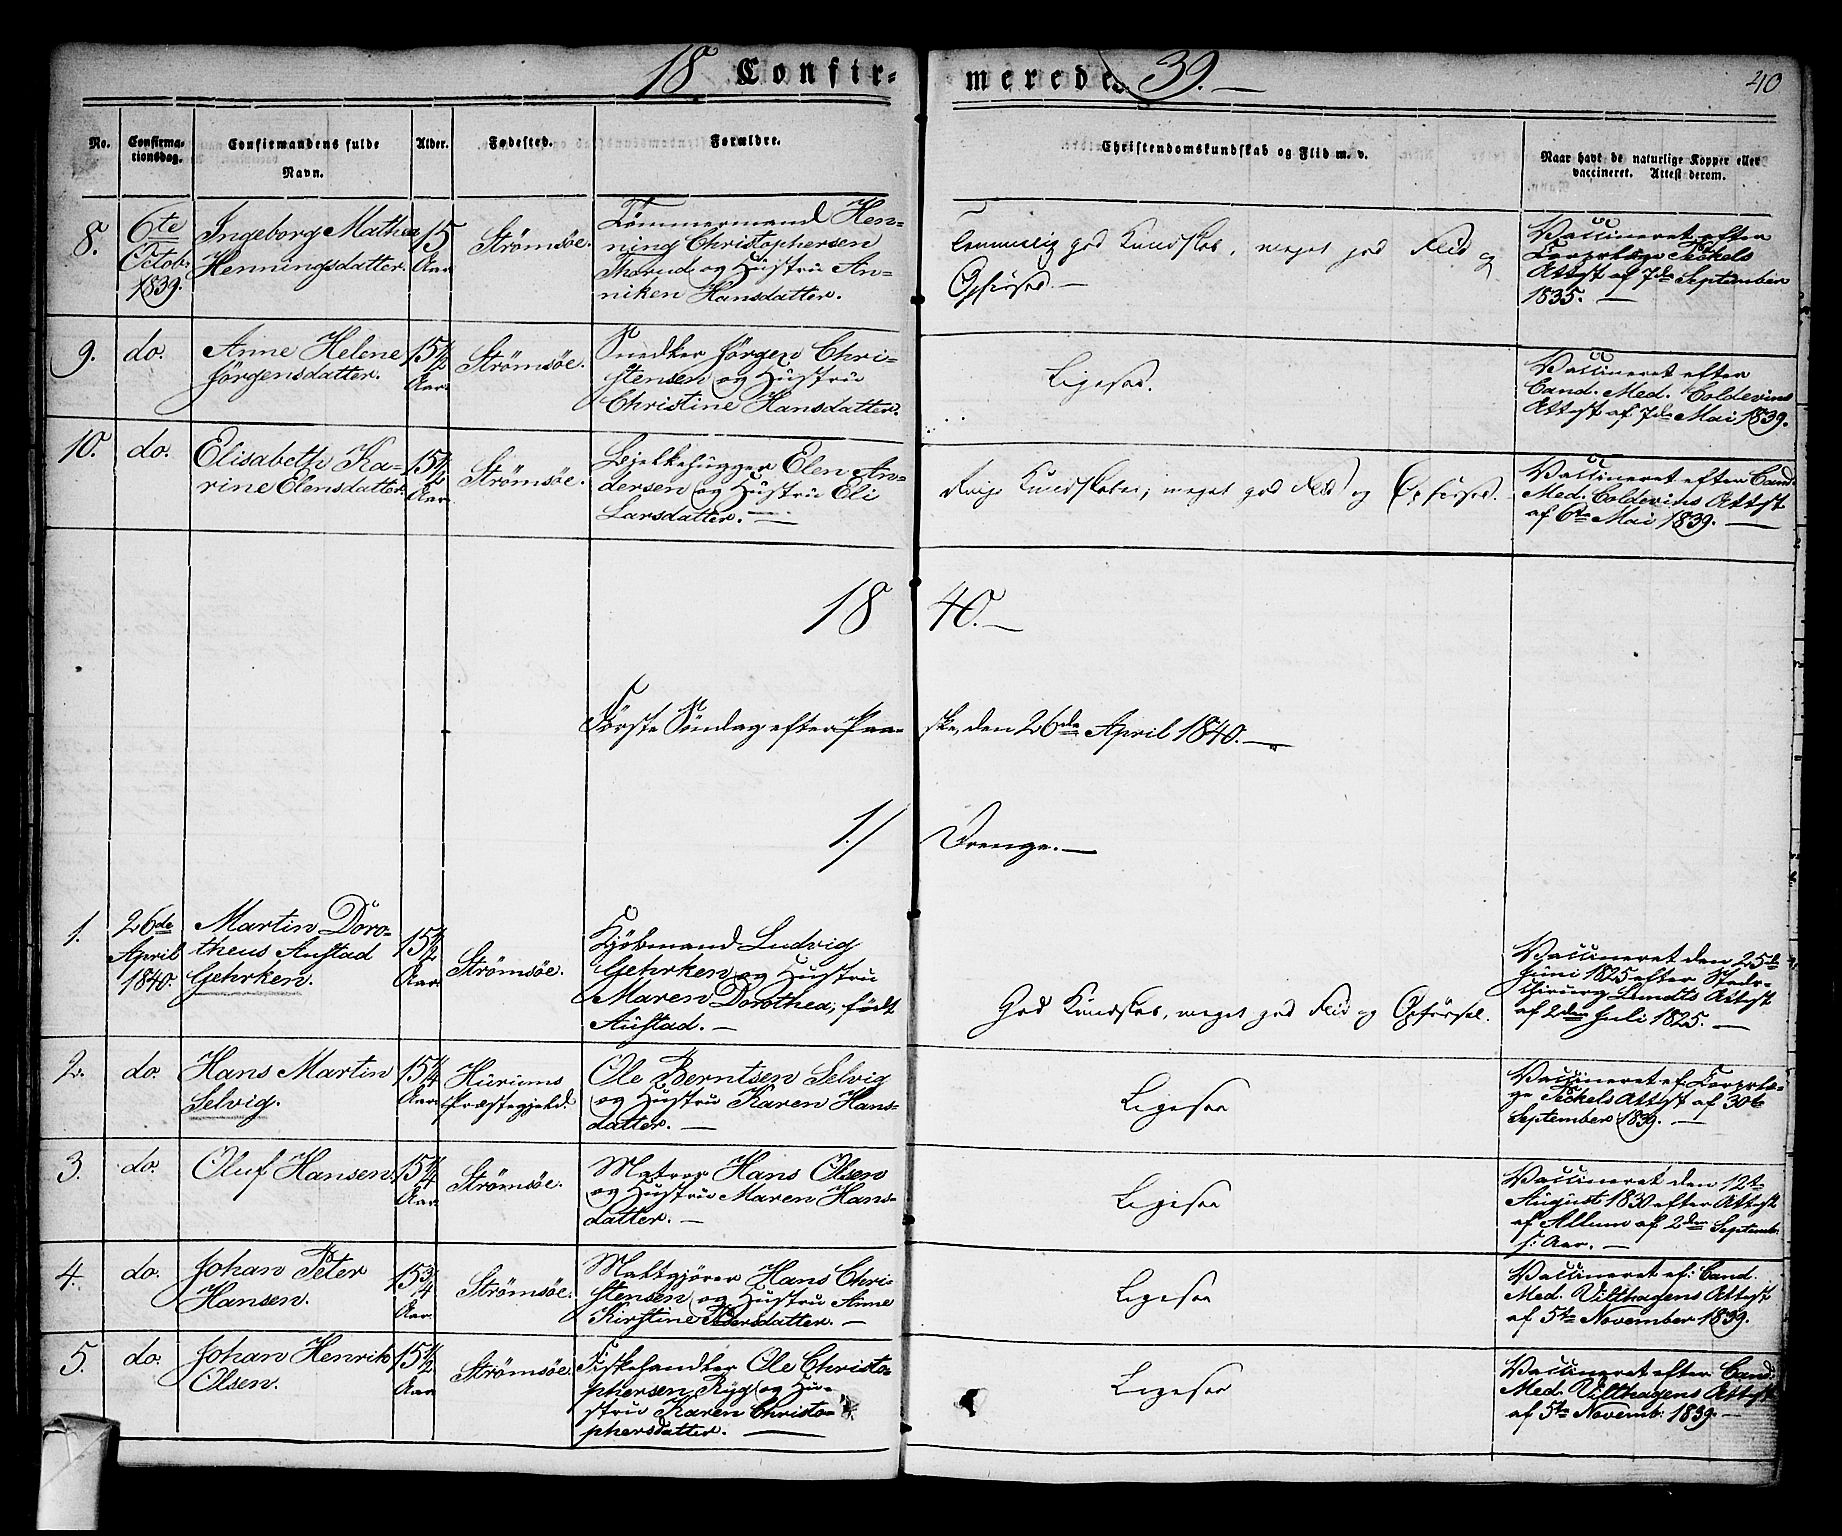 18 Confirmerede 39.
40
No.
Confirmationsdag.
Confirmandens fulde
Navn.
Alder.
Fødested.
Forældre.
Christendomskundskab og Flid m. v.
Naar havt de naturlige Kopper eller
vaccineret. Attest derom.
8.
6te
Octob.
1839.
Ingeborg Mathea
Henningsdatter.
15
Aar
Strömsöe.
Tömmermand Hen-
ning Christophersen
Thorud og Hustru An-
niken Hansdatter.
god Kundskab, meget god Flid og
Opførsel.
Vaccineret efter
Corpslæge Tickels
Attest af 7de September
1835.
9.
do.
Anne Helene
Jörgensdatter.
15 1/2
Aar
Strömsöe.
Snedker Jörgen Chri-
stensen og Hustru
Christine Hansdatter.
Ligesaa.
Vaccineret efter
Cand. Med. Coldevins
Attest af 7de Mai 1839.
10.
do.
Elisabeth Ka-
rine Elensdatter.
15 1/2
Aar
Strömsöe.
Bjelkehugger Elen An-
dersen og Hustru Eli
Larsdatter.
Kundskaber, meget god Flid og Opførsel.
Vaccineret efter Cand.
Med. Coldevins Attest
af 6te Mai 1839.
18 40.
Förste Söndag efter Paa-
ske, den 26de April 1840.
1./ Drenge.
1.
26de
April
1840.
Martin Doro-
theus Austad
Gehrken.
15 1/2
Aar
Strömsöe.
Kjöbmand Ludvig
Gehrken og Hustru
Maren Dorothea, födt
Austad.
God Kundskab, meget god Flid og Opførsel.
Vaccineret den 25de
Juni 1825 efter Stads-
chirurg Lundts Attest
af 2den Juli 1825.
2.
do.
Hans Martin
Selvig.
15 1/4
Aar
Hurums
Præstegjeld.
Ole Berntsen Selvig
og Hustru Karen Hans-
datter.
Ligesaa
Vaccineret ef: Corpslæ-
ge Tickels Attest af 30te
September 1839.
3.
do.
Oluf Hansen.
15 1/4
Aar
Strömsöe.
Matros Hans Olsen
og Hustru Maren Hans-
datter.
Ligesaa
Vaccineret den 12te
August 1830 efter Attest
af Allum af 2den Septemb.
s: Aar.
4.
do.
Johan Peter
Hansen.
15 3/4
Aar
Strömsöe.
Maltgjörer Hans Chri-
stensen og Hustru Anne
Kirstine Pedersdatter.
Ligesaa
Vaccineret ef: Cand.
Med. Vilthagens Attest
af 5te November 1839.
5.
do.
Johan Henrik
Olsen.
15 1/2
Aar
Strömsöe.
Fiskehandler Ole Christo-
phersen Ryg og Hu-
stru Karen Christo-
phersdatter.
Ligesaa
Vaccineret efter Cand.
Med. Vilthagens Attest
af 5te Novemb: 1839.